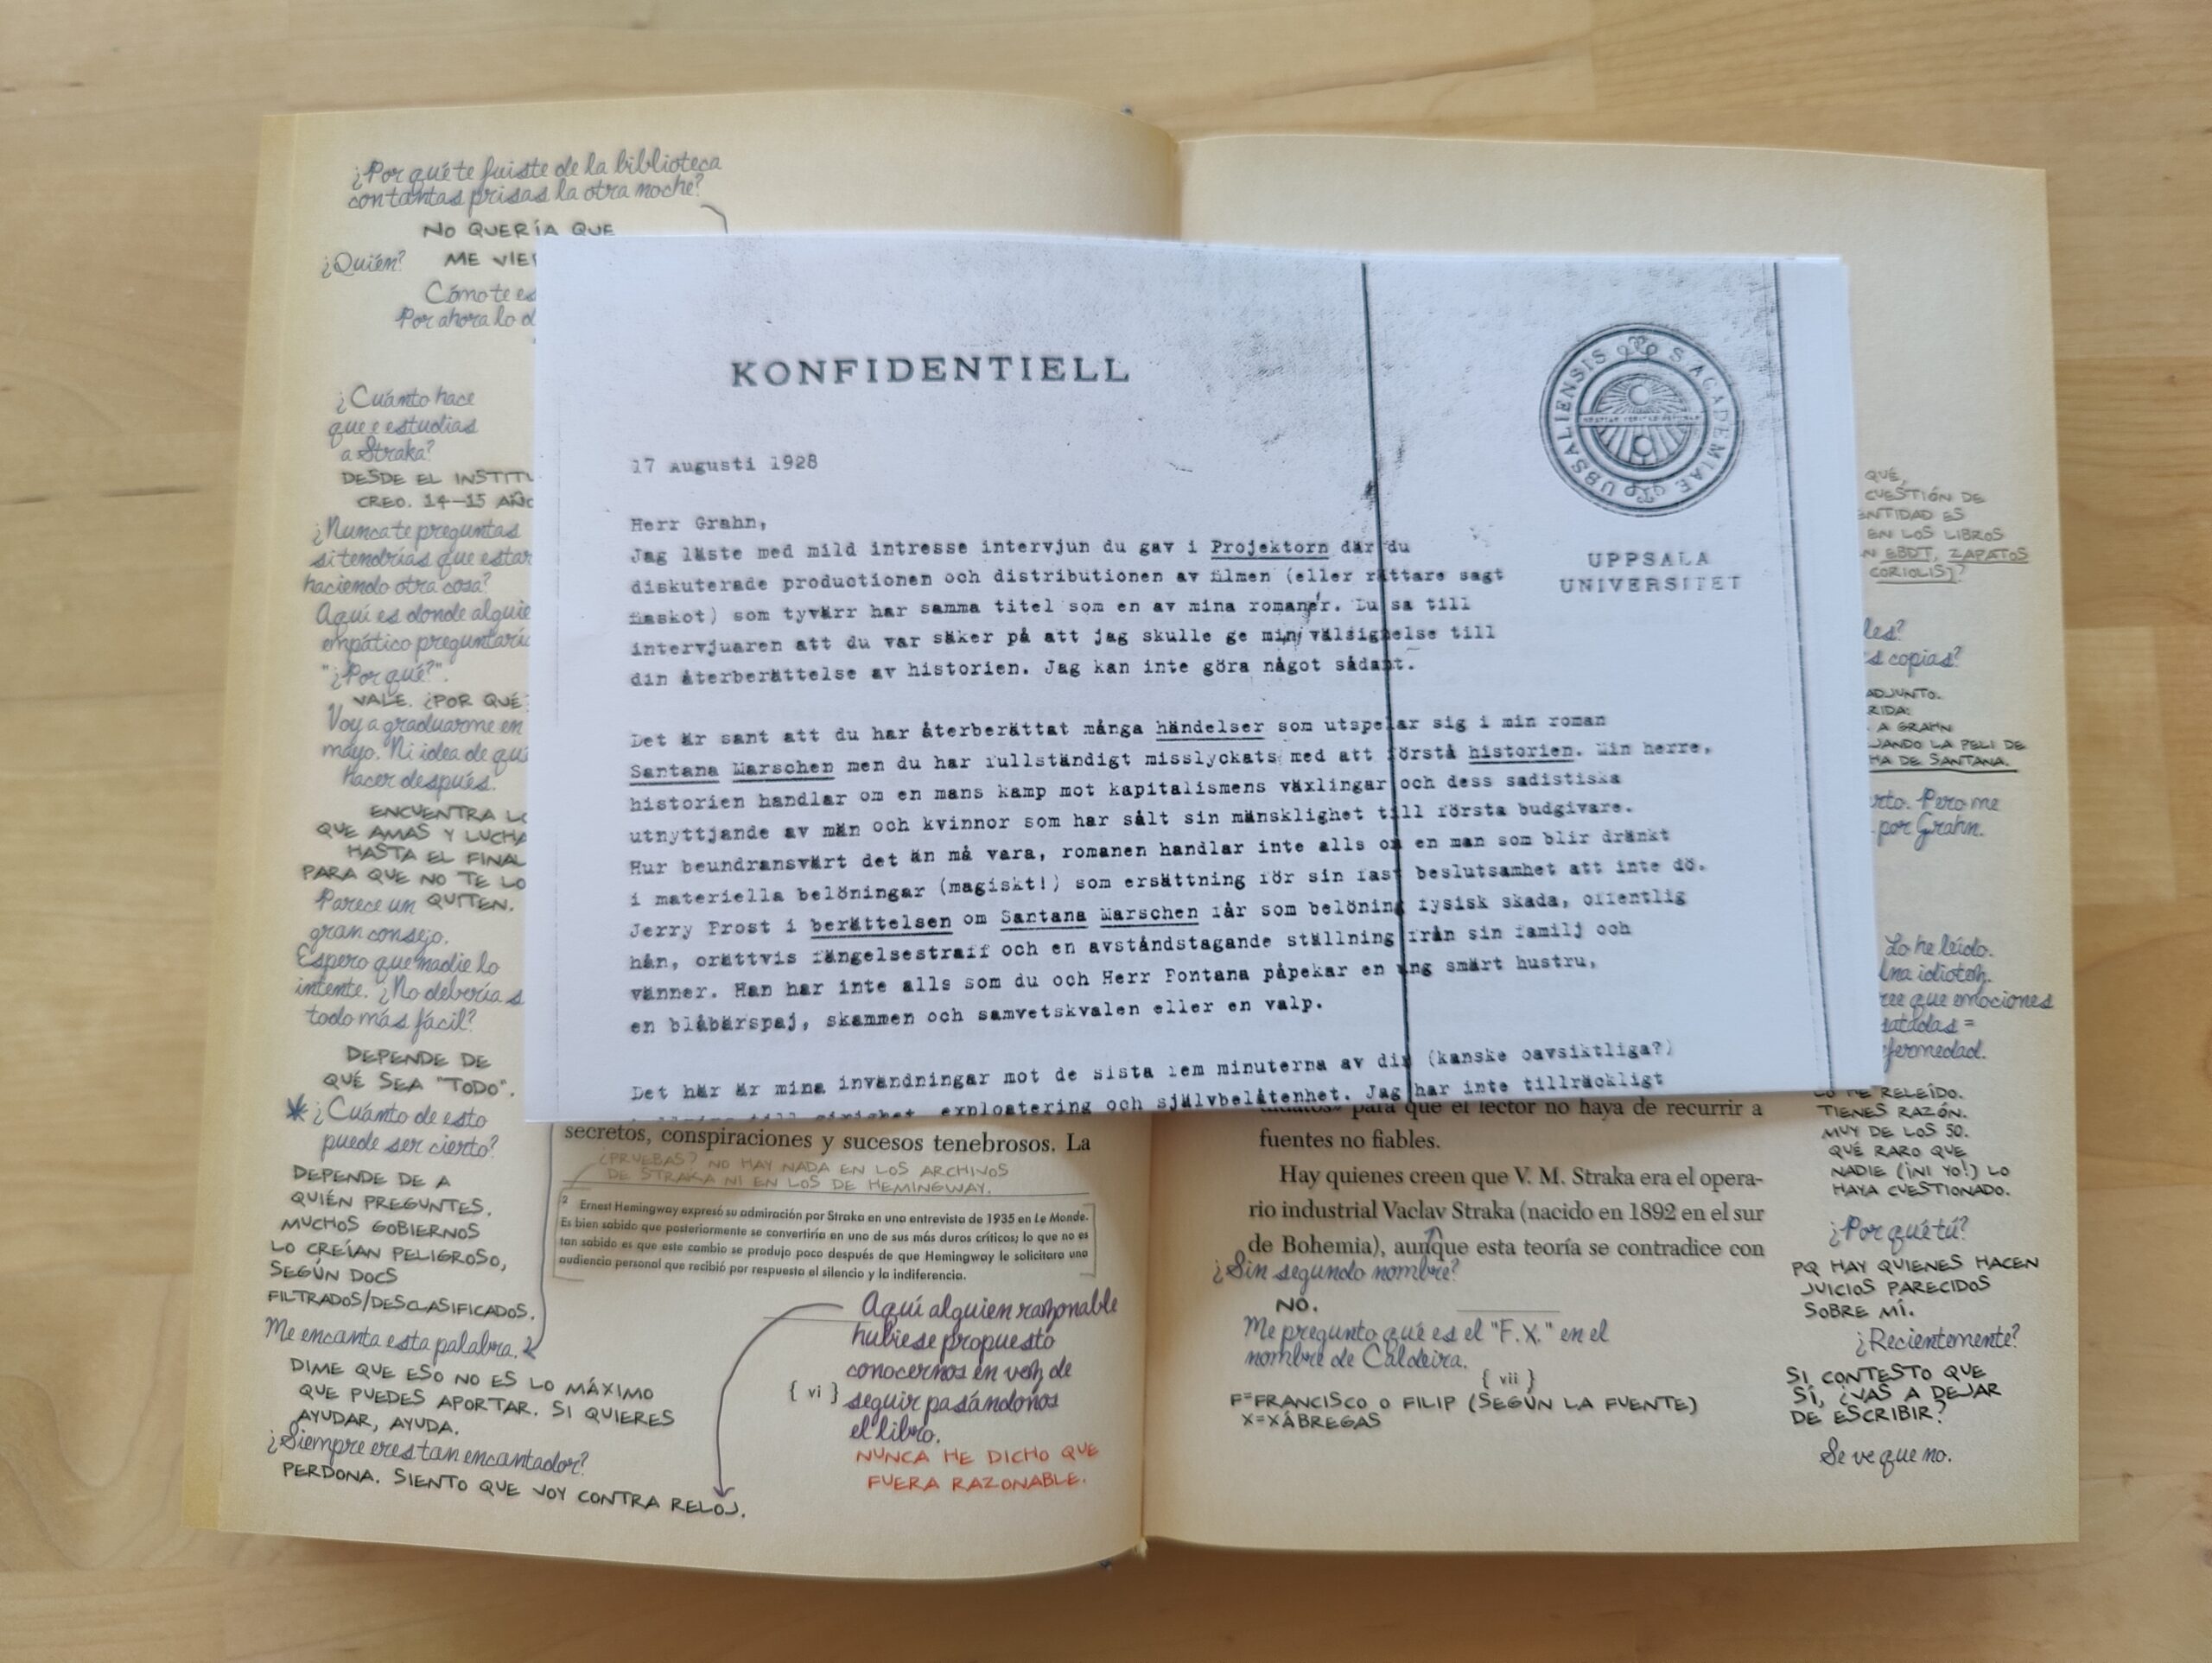 ¿Por qué te fuiste de la biblioteca
con tantas prisas la otra noche?
NO QUERÍA QUE
¿Quién? ME VIER
Cómo te es
Por ahora lo d
¿Cuánto hace
que e estudias
a Straka?
DESDE EL INSTITU
CREO. 14-15 AÑO
¿Nunca te preguntas
si tendrías que estar
haciendo otra cosa?
Aquí es donde alguie
empático preguntaría
"¿Por qué?".
VALE. ¿POR QUÉ
Voy a graduarme en
mayo. Ni idea de qu
hacer después.
ENCUENTRA LO
QUE AMAS Y LUCHA
HASTA EL FINAL
PARA QUE NO TE LO
QUITEN.
Parece un
gran consejo.
Espero que nadie lo
intente. ¿No debería s
todo más fácil?
DEPENDE DE
QUÉ SEA "TODO".
¿Cuánto de esto
puede ser cierto?
DEPENDE DE A
QUIÉN PREGUNTES.
MUCHOS GOBIERNOS
LO CREÍAN PELIGROSO,
SEGÚN DOCS
FILTRADOS/DESCLASIFICADOS.
Me encanta esta palabra.
DIME QUE ESO NO ES LO MÁXIMO
QUE PUEDES APORTAR. SI QUIERES
AYUDAR, AYUDA.
¿Siempre eres tan encantador?
PERDONA. SIENTO QUE VOY CONTRA RELOJ.
KONFIDENTIELL
UPPSALA
UNIVERSITET
17 Augusti 1928
Herr Grahn,
Jag läste med mild intresse intervjun du gav i Projektorn där du
diskuterade productionen och distributionen av filmen (eller rättare sagt
maskot) som tyvärr har samma titel som en av mina romaner. Du sa till
intervjuaren att du var säker på att jag skulle ge min välsignelse till
din återberättelse av historien. Jag kan inte göra något sådant.
Det är sant att du har återberättat många händelser som utspelar sig i min roman
Santana Marschen men du har fullständigt misslyckats med att förstå historien. Min herre,
historien handlar om en mans kamp mot kapitalismens växlingar och dess sadistiska
utnyttjande av män och kvinnor som har sålt sin mänsklighet till första budgivare.
Hur beundransvärt det än må vara, romanen handlar inte alls om en man som blir dränkt
i materiella belöningar (magiskt!) som ersättning för sin fast beslutsamhet att inte dö.
Jerry Frost i berättelsen om Santana Marschen får som belöning fysisk skada, offentlig
hån, orättvis fängelsestraff och en avståndstagande ställning från sin familj och
vänner. Han har inte alls som du och Herr Fontana påpekar en ung smärt hustru,
en blåbärspaj, skammen och samvetskvalen eller en valp.
Det här är mina invändningar mot de sista fem minuterna av din (kanske oavsiktliga?)
exploatering och självbelåtenhet. Jag har inte tillräckligt
secretos, conspiraciones y sucesos tenebrosos. La
¿PRUEBAS? NO HAY NADA EN LOS ARCHIVOS
DE STRAKA NI EN LOS DE HEMINGWAY.
2 Ernest Hemingway expresó su admiración por Straka en una entrevista de 1935 en Le Monde.
Es bien sabido que posteriormente se convertiría en uno de sus más duros críticos; lo que no es
tan sabido es que este cambio se produjo poco después de que Hemingway le solicitara una
audiencia personal que recibió por respuesta el silencio y la indiferencia.
Aquí alguien razonable
hubiese propuesto
conocernos en vez de
seguir pasándonos
el libro.
{ vi }
NUNCA HE DICHO QUE
FUERA RAZONABLE.
para que el lector no haya de recurrir a
fuentes no fiables.
Hay quienes creen que V. M. Straka era el opera-
rio industrial Vaclav Straka (nacido en 1892 en el sur
de Bohemia), aunque esta teoría se contradice con
¿Sin segundo nombre?
NO.
Me pregunto qué es el "F.X." en el
nombre de Caldeira.
{ vii }
F=FRANCISCO O FILIP (SEGÚN LA FUENTE)
X=XÁBREGAS
QUÉ,
CUESTIÓN DE
ENTIDAD ES
EN LOS LIBROS
N EBDT, ZAPATOS
CORIOLIS)?
les?
s copias?
ADJUNTO.
RIDA:
A GRAHN
JANDO LA PELI DE
HA DE SANTANA.
rto. Pero me
por Grahn.
Lo he leído.
Una idiotez.
ree que emociones
satadas =
fermedad.
LO HE RELEÍDO.
TIENES RAZÓN.
MUY DE LOS 50.
QUÉ RARO QUE
NADIE (¡NI YO!) LO
HAYA CUESTIONADO.
¿Por qué tú?
PQ HAY QUIENES HACEN
JUICIOS PARECIDOS
SOBRE MÍ.
¿Recientemente?
SI CONTESTO QUE
SÍ, ¿VAS A DEJAR
DE ESCRIBIR?
Se ve que no.